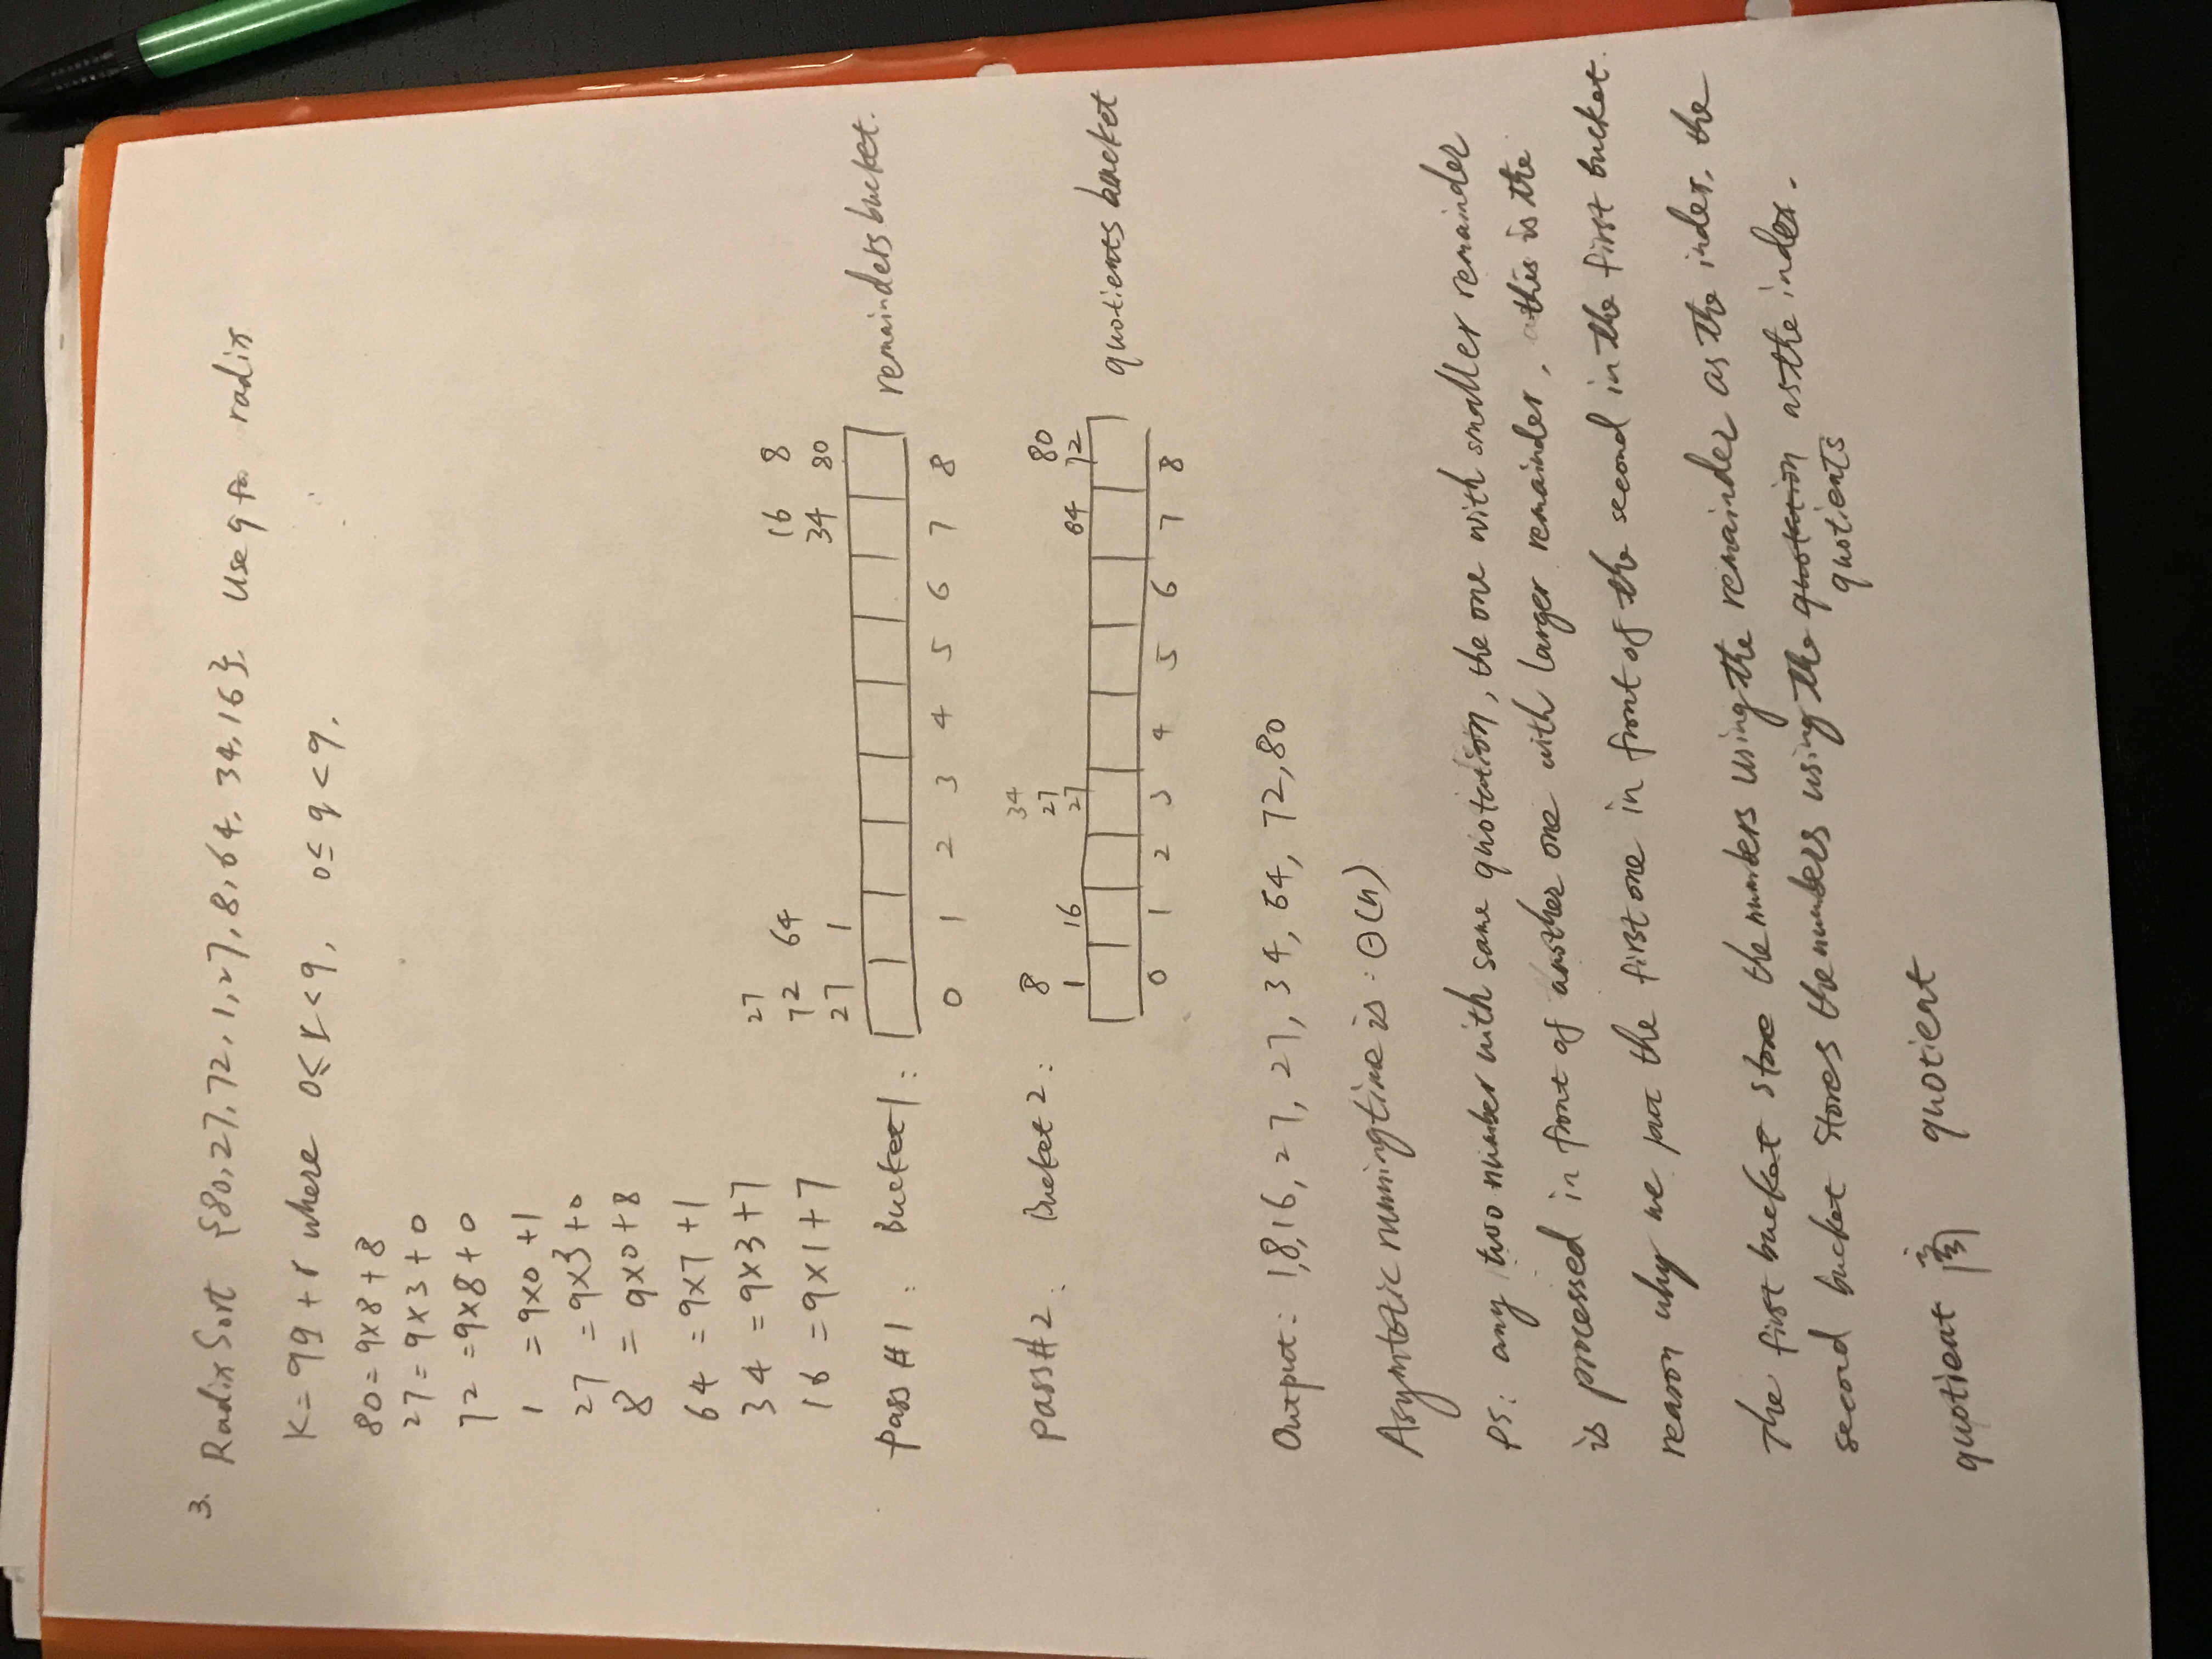 3. Radix Sort {80, 27, 72, 1, 27, 8, 64, 34, 16}. Use 9 for radix
K = 9q + r where 0≤r<9, 0≤q<9.
80 = 9×8 + 8
27 = 9×3 + 0
72 = 9×8 + 0
1 = 9×0 + 1
27 = 9×3 + 0
8 = 9×0 + 8
64 = 9×7 + 1
34 = 9×3 + 7
16 = 9×1 + 7
27
72 64 16 8
27 1 34 80
Pass #1: Bucket 1: remainders bucket.
0 1 2 3 4 5 6 7 8
34
8 27 80
1 16 27 64 72
pass #2: Bucket 2: quotients bucket
0 1 2 3 4 5 6 7 8
Output: 1, 8, 16, 27, 27, 34, 64, 72, 80
Asymtotic running time is: Θ(n)
PS: any two number with same quotation, the one with smaller remainder
is processed in front of another one with larger remainder, this is the
reason why we put the first one in front of the second in the first bucket.
The first bucket store the numbers using the remainder as the index, the
second bucket stores the numbers using the quotation as the index.
quotients
quotient 商 quotient